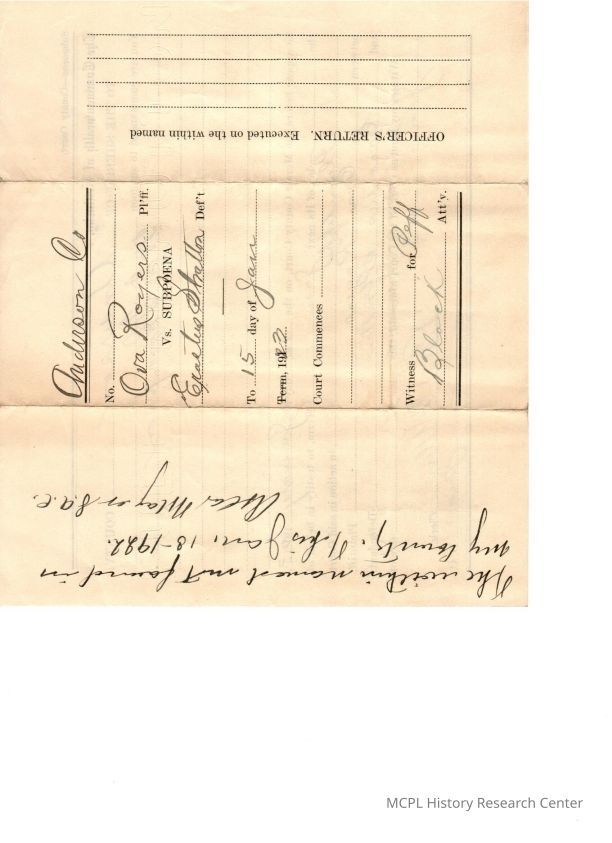 OFFICER'S RETURN. Executed on the within named
Anderson Co
No.
Ova Rogers Pl'ff.
Vs. SUBPOENA
Erastus Stratton Def't
To 15 day of Jan
Term, 1923
Court Commences
Witness for Plff
Black Att'y.
The within named not found in
my county. This Jan. 13-1922.
Mayes S.A.C.
MCPL History Research Center